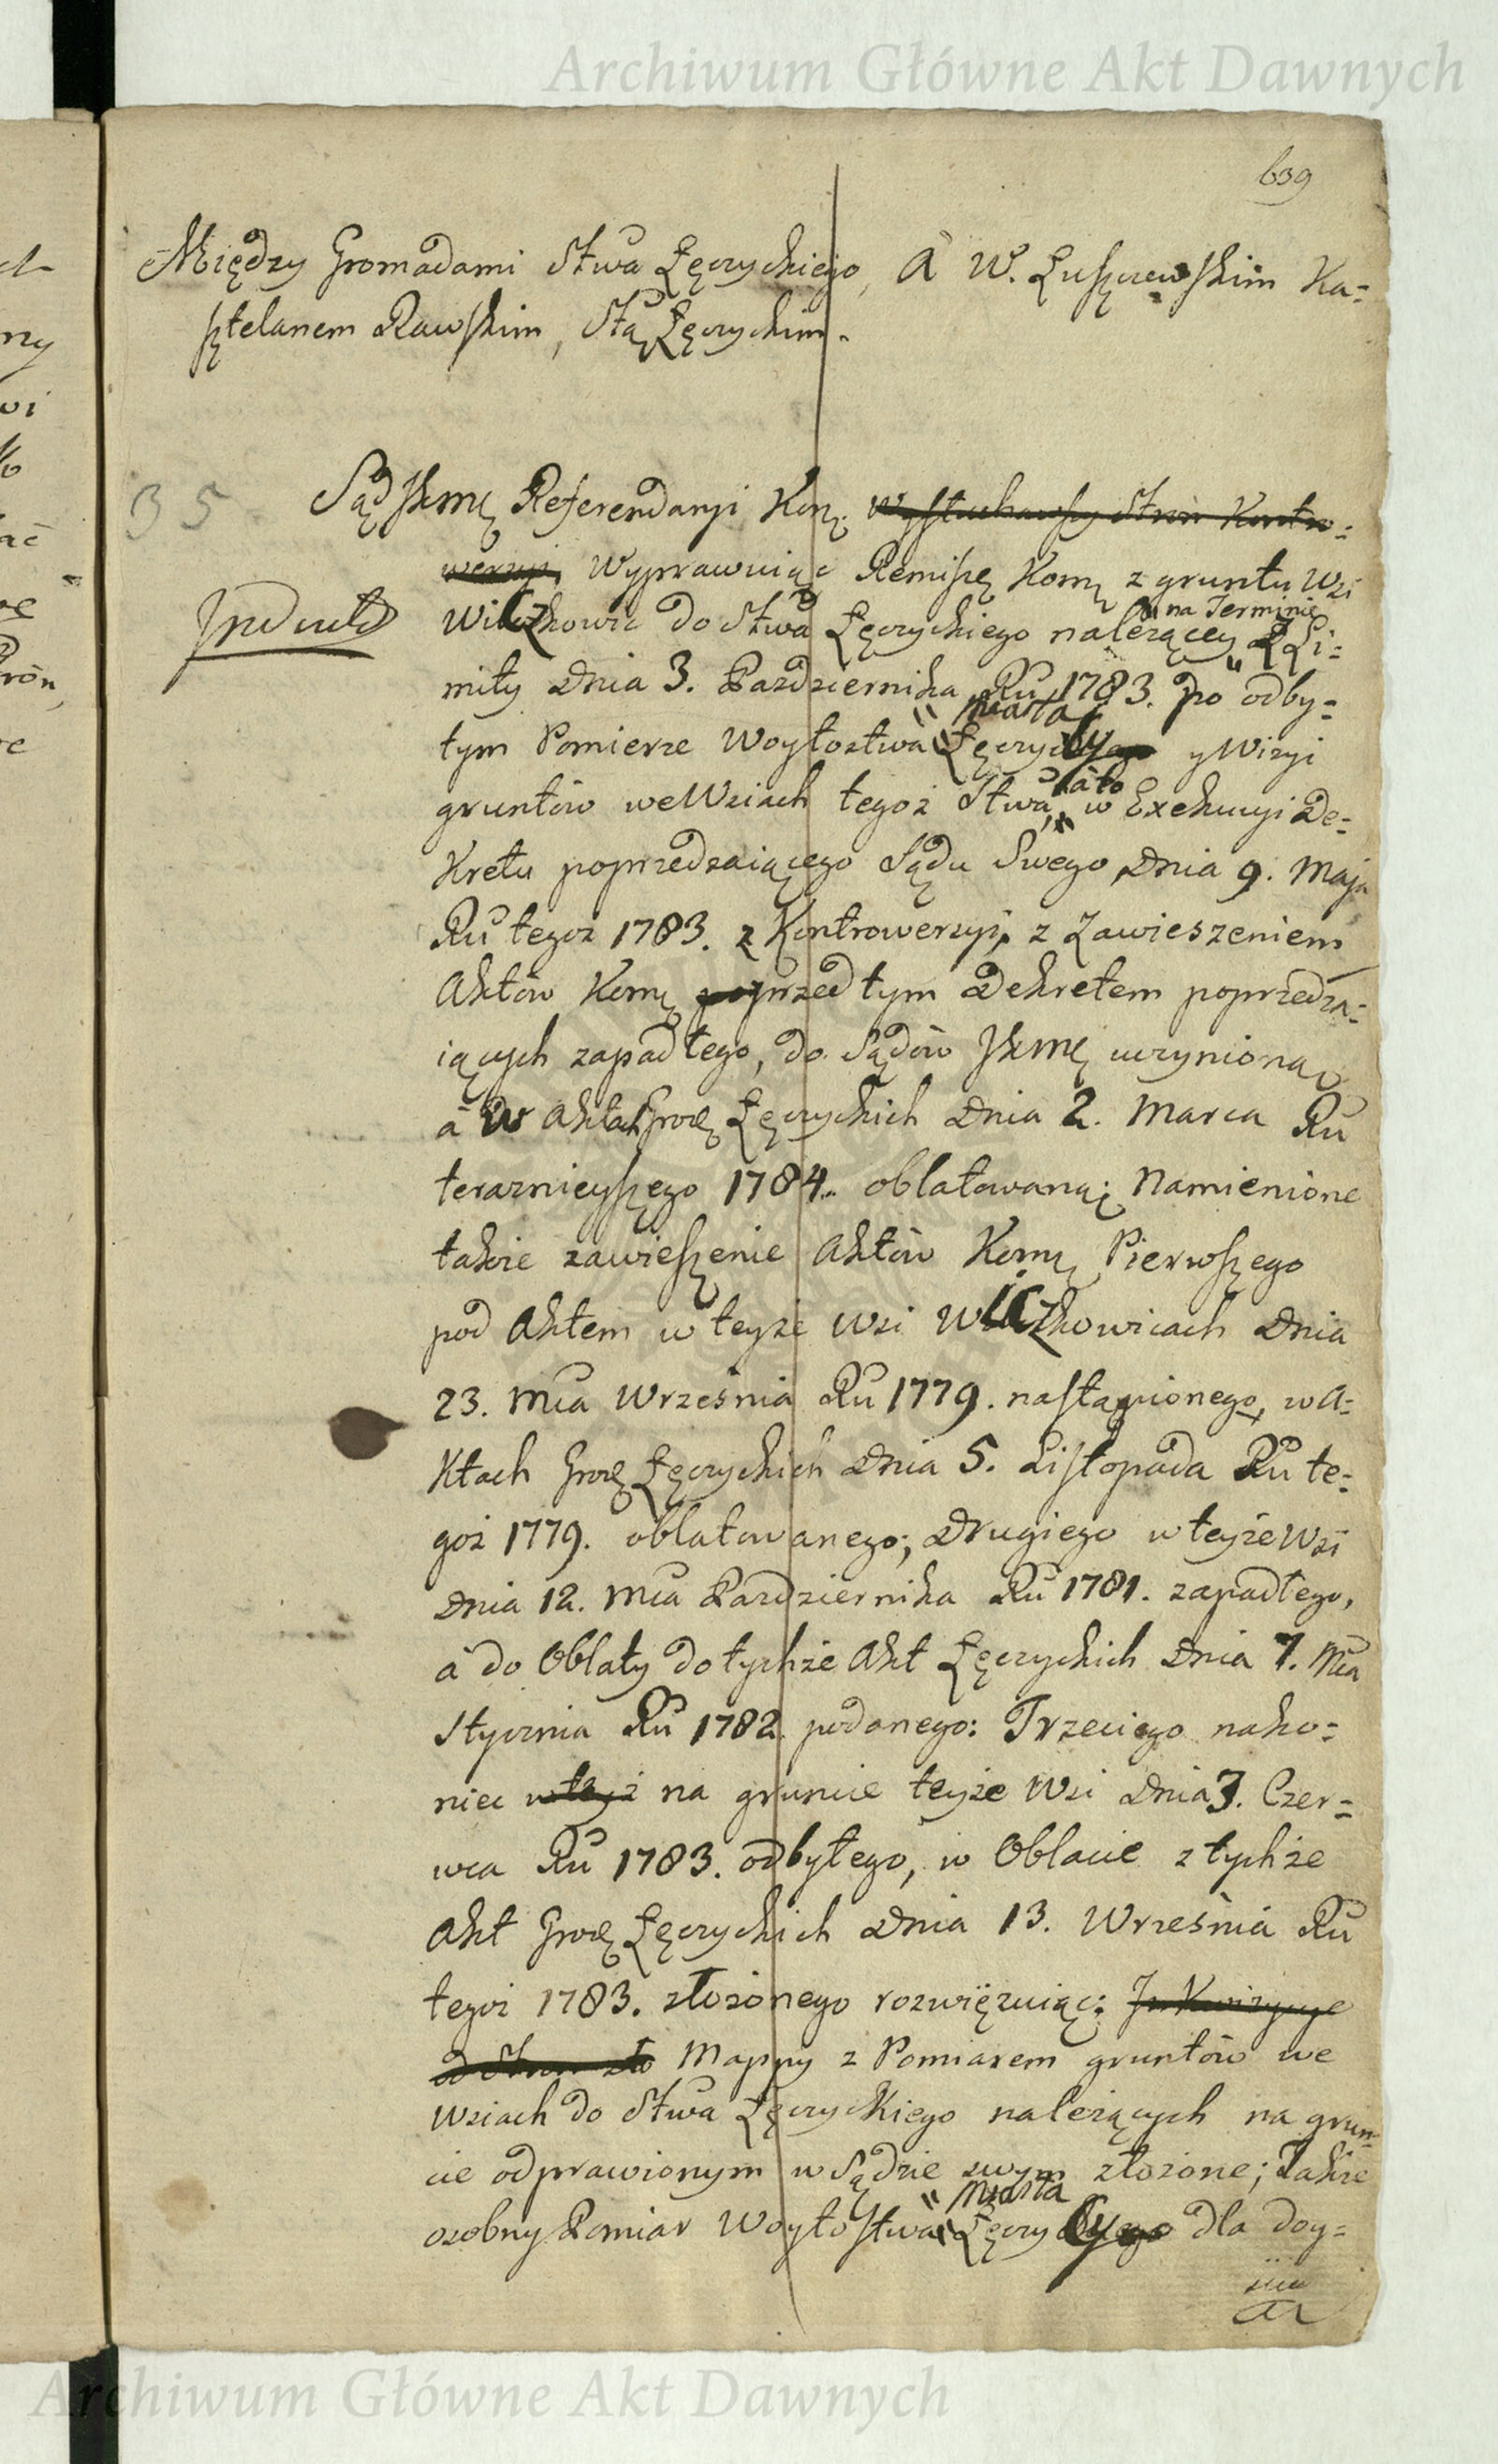 Archiwum Główne Akt Dawnych
639
Między Gromadami Stwa Łęczyckiego, A W. Łuszczewskim Ka=
sztelanem Rawskim, Stą Łęczyckim.
35
Sąd JKMę Referendaryi Kor: Wysłuchawszy Stron Kontro=
wersyi, Wyprawuiąc Remissę Komę z gruntu Wsi
Wilczkowic do Stwa Łęczyckiego należącey na Terminie Li=
mity Dnia 3. Pazdziernika Ru 1783. po odby=
tym Pomierze Woytostwa Miasta Łęczycy y Wizyi
gruntów we Wsiach tegoż Stwa, áto w Exekucyi De=
Kretu poprzedzaiącego Sądu Swego Dnia 9. Maja
Ru tegoż 1783. z Kontrowersyi, z Zawieszeniem
Aktów Komę przed tym Dekretem poprzedza=
iących zapadłego, do Sądów JKMę uczynioną
á W Aktach Grodz Łęczyckich Dnia 2. Marca Ru
teraznieyszego 1784. oblatowaną; Namienione
także zawieszenie Aktów Komę Pierwszego
pod Aktem w teyże Wsi Wilczkowicach Dnia
23. Mca Września Ru 1779. nastąpionego, w A=
Ktach Grodz Łęczyckich Dnia 5. Listopada Ru te=
goż 1779. oblatowanego; Drugiego w teyże Wsi
Dnia 12. Mca Pazdziernika Ru 1781. zapadłego,
á do Oblaty do tychże Akt Łęczyckich Dnia 7. Mca
Stycznia Ru 1782. podanego: Trzeciego nako=
niec w teyż na gruncie teyże Wsi Dnia 3. Czer=
wca Ru 1783. odbytego, w Oblacie z tychże
Akt Grodz Łęczyckich Dnia 13. Września Ru
tegoż 1783. złożonego rozwięzuiąc: Inkwizycye
od Stron zło Mappy z Pomiarem gruntów we
Wsiach do Stwa Łęczyckiego należących na grun=
cie odprawionym w Sądzie swym złożone; Także
osobny Pomiar Woytostwa Miasta Łęczycy dla doy=
Archiwum Główne Akt Dawnych